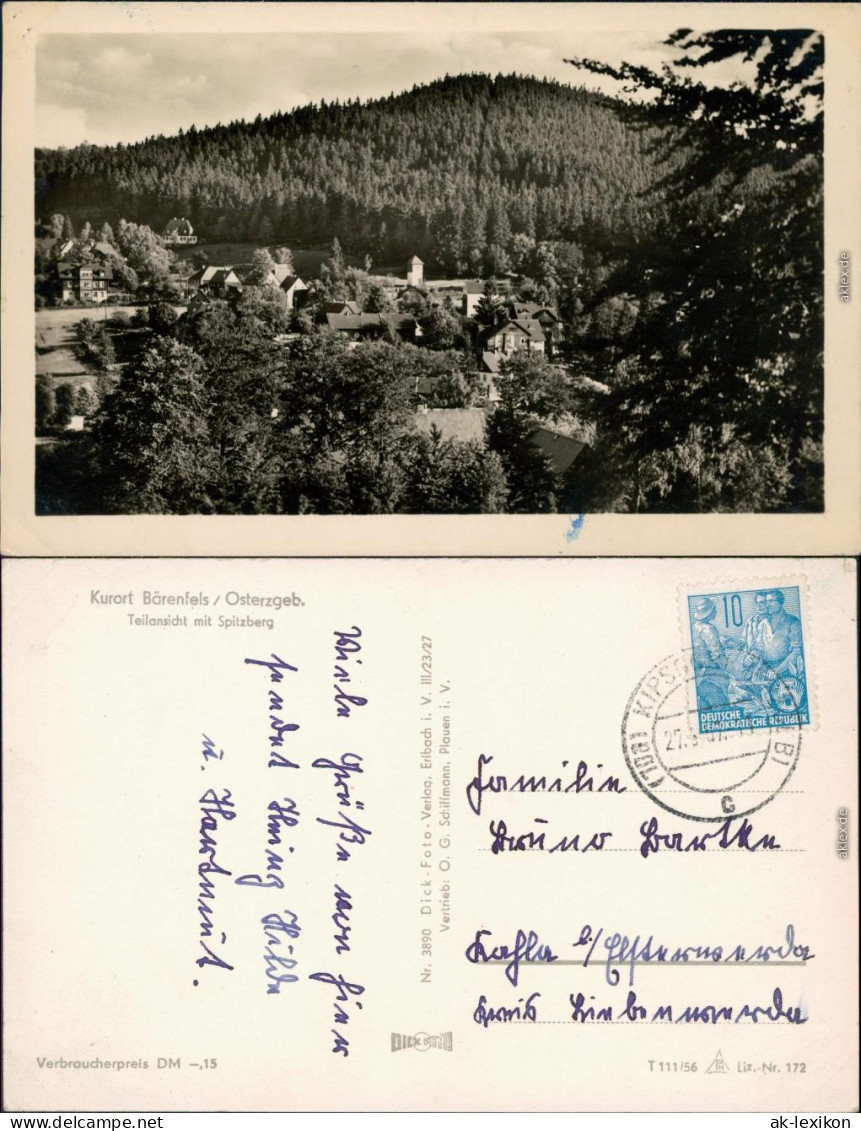 aklex.de
Kurort Bärenfels / Osterzgeb.
Teilansicht mit Spitzberg
Viele Grüße von hier
sendet
Hilde
u. Hartmut.
Nr. 3890 Dick-Foto-Verlag, Erlbach i. V. III/23/27
Vertrieb: O. G. Schiffmann, Plauen i. V.
10
DEUTSCHE
DEMOKRATISCHE REPUBLIK
(10a) KIPSD
27.
c
Familie
Bruno Bartke
Kahla b/Elsterwerda
Kreis Liebenwerda
DICK FOTO
Verbraucherpreis DM –,15
T 111/56
Liz.-Nr. 172
aklex.de
ak-lexikon